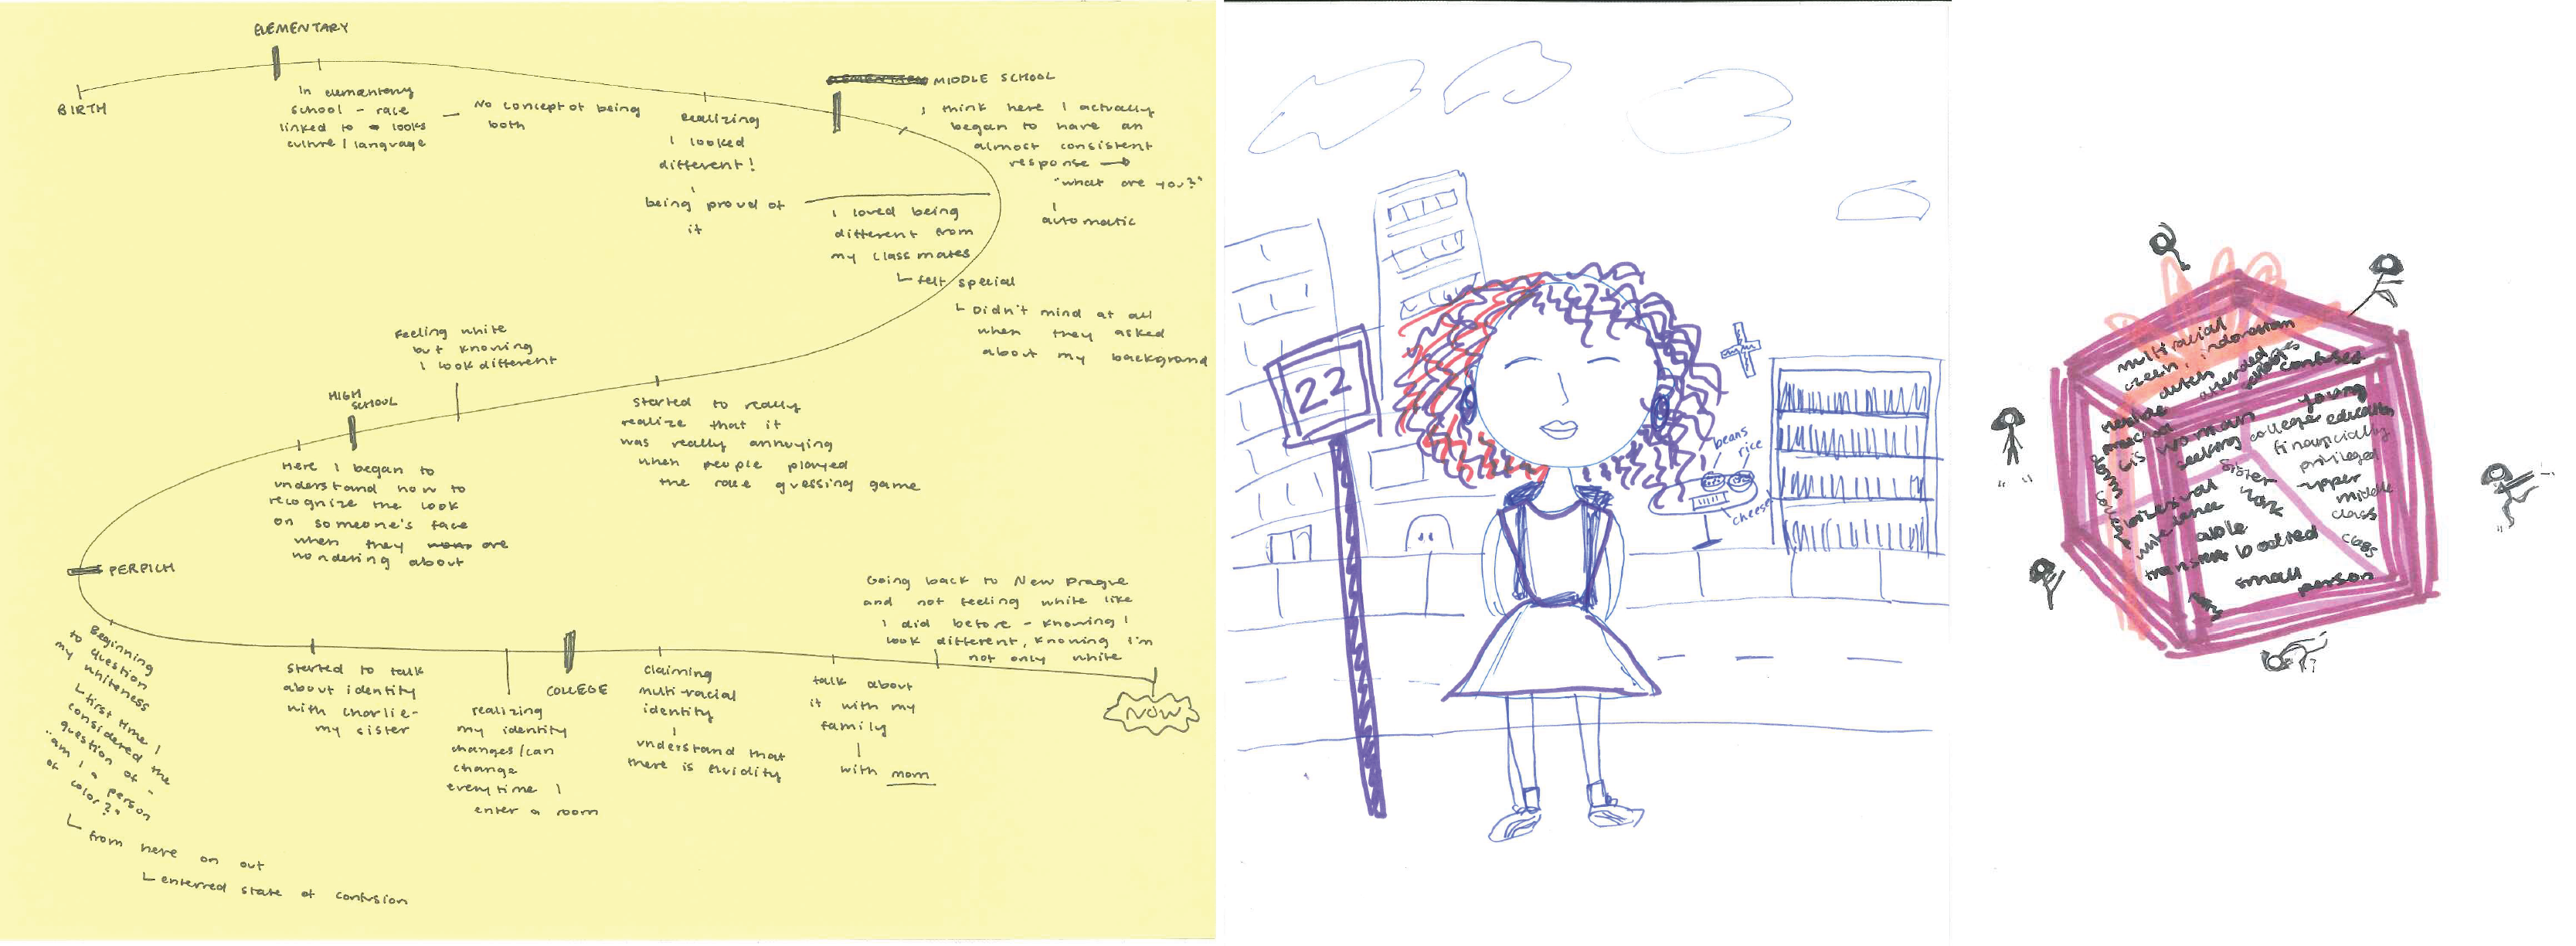 ELEMENTARY
BIRTH
In elementary
school - race
linked to looks
culture / language
No concept of being
both
realizing
I looked
different!
being proud of
it
MIDDLE SCHOOL
I think here I actually
began to have an
almost consistent
response →
"what are you?"
automatic
I loved being
different from
my classmates
felt special
Didn't mind at all
when they asked
about my background
started to really
realize that it
was really annoying
when people played
the race guessing game
Feeling white
but knowing
I look different
HIGH
SCHOOL
Here I began to
understand how to
recognize the look
on someone's face
when they are
wondering about
PERPICH
Beginning
to question
my whiteness
first time I
considered the
question of -
"am I a person
of color?"
from here on out
enterred state of confusion
started to talk
about identity
with Charlie -
my sister
realizing
my identity
changes/can
change
everytime I
enter a room
COLLEGE
claiming
multi-racial
identity
understand that
there is fluidity
talk about
it with my
family
with mom
Going back to New Prague
and not feeling white like
I did before - knowing I
look different, knowing I'm
not only white
NOW
22
beans
rice
cheese
multiracial
czech, indonesian
dutch
confused
young
cis woman
college education
seeking
financially
privileged
sister
upper
middle
class
able
class
small
person